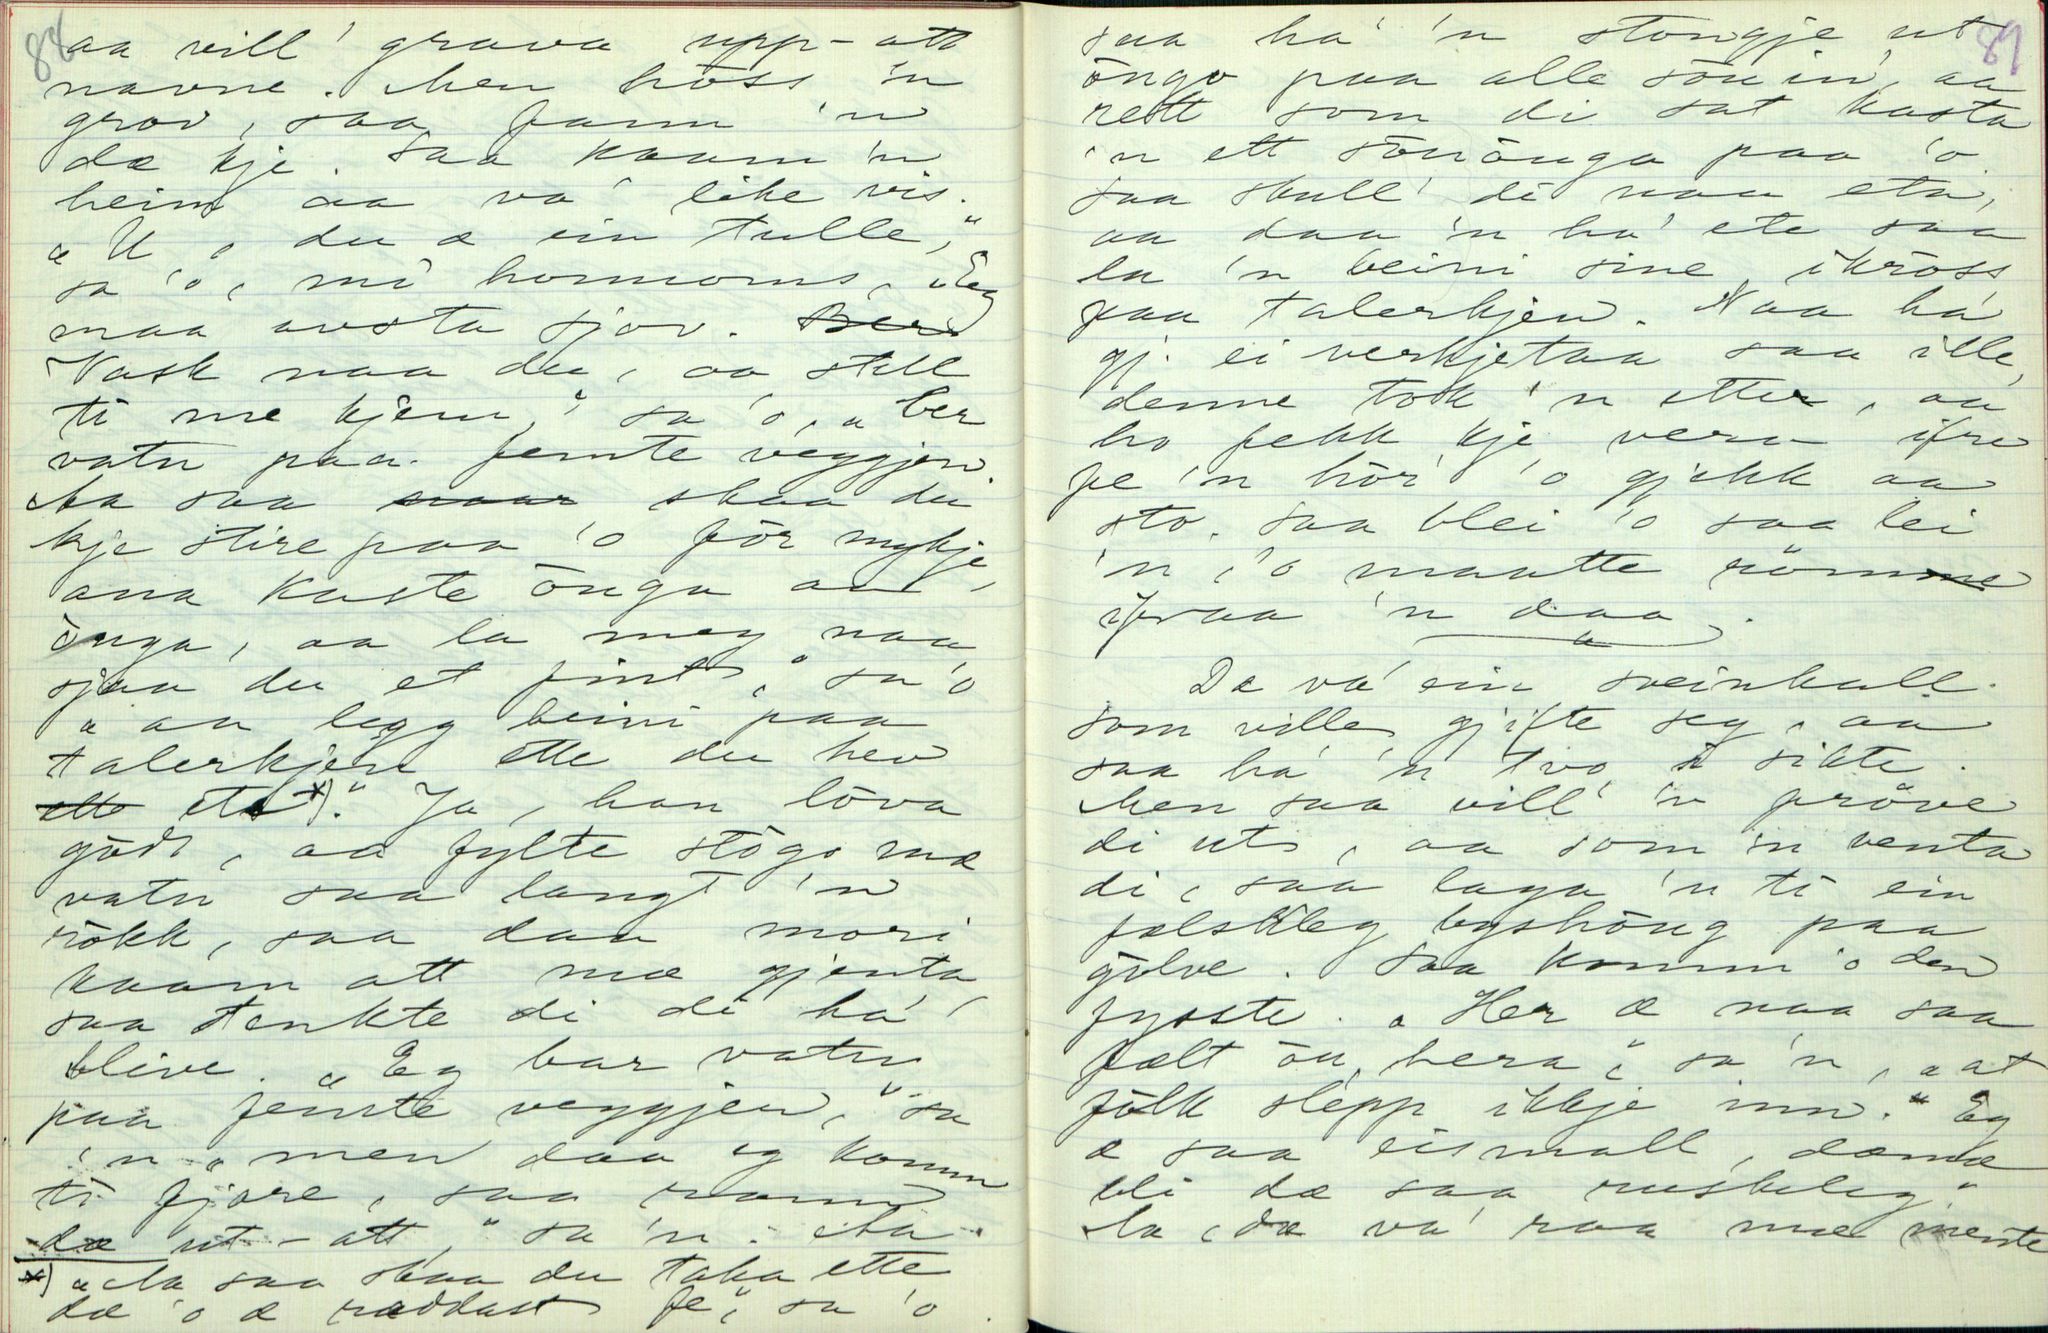 88
aa vill' grava upp-att
navne. Men höss 'n
grov, saa fann 'n
dæ kje. Saa kaam 'n
heim aa va' like vis.
"U, du æ ein tulle,"
sa 'o, mi hormoms, "Eg
maa avsta sjov. Ber
Vask naa du, aa stell
ti me kjem," sa 'o, "ber
vatn paa femte veggjen
Aa saa naar skaa du
kje stire paa 'o för mykje,
ana kaste önga an
önga, aa la meg naa
sjaa du et fint," sa 'o
"aa legg beini paa
talerkjen ette du hev
ette ete x)." Ja, han löva
godt, aa fylte stögo mæ
vatn saa langt 'n
rökk, saa daa mori
kaam att mæ gjenta
saa tenkte di di ha'
blive. "Eg bar vatn
paa femte veggjen," sa
'n, "men daa eg komm
ti fjore, saa rann
dæ ut-att," sa 'n. Aa
x) "Aa saa skaa du taka ette
dæ 'o æræddast fe," sa 'o.
89
saa ha' 'n stongje ut
öngo paa alle söuin, aa
rett som di sat kasta
'n ett söuönga paa 'o
saa skull' di naa eta,
aa daa 'n ha' ete saa
la 'n beini sine i kröss
paa talerkjen. Naa ha'
gj. ei verkjetaa saa ille,
denne tok 'n etter, aa
ho fekk kje vera ifre
fe 'n hör' 'o gjekk aa
sto. Saa blei 'o saa lei
'n, 'o maatte römme
ifraa 'n daa.
Dæ va' ein sveinkall
som ville gjifte seg, aa
saa ha' 'n tvo i sikte.
Men saa vill' 'n pröve
di ut, aa som 'n venta
di, saa laga 'n ti ein
fælskleg boshöug paa
golve. Saa komm 'o den
fysste. "Her æ naa saa
fælt ou, hera," sa 'n, "at
folk slepp ikkje inn." "Eg
æ saa eismall, dæmæ
bli dæ saa ruskeleg."
Aa, dæ va' raa mæ, mente